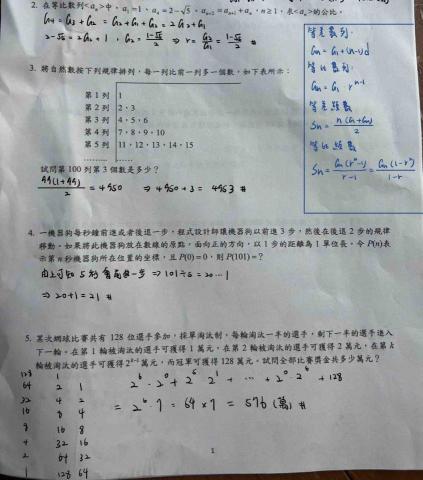 2. 在等比數列<aₙ>中，a₁=1、a₄=2-√5、aₙ₊₂=aₙ₊₁+aₙ，n≥1，求<aₙ>的公比。
G₄ = G₃+G₂ = G₂+G₁+G₂ = 2G₂+G₁
2-√5 = 2G₂+1，G₂ = (1-√5)/2 ⇒ r = G₂/G₁ = (1-√5)/2 #
3. 將自然數按下列規律排列，每一列比前一列多一個數，如下表所示：
第 1 列 1
第 2 列 2，3
第 3 列 4，5，6
第 4 列 7，8，9，10
第 5 列 11，12，13，14，15
試問第 100 列第 3 個數是多少？
99(1+99)/2 = 4950 ⇒ 4950+3 = 4953 #
等差數列：
Gₙ = G₁+(n-1)d
等比數列：
Gₙ = G₁·rⁿ⁻¹
等差級數
Sₙ = n(G₁+Gₙ)/2
等比級數
4. 一機器狗每秒鐘前進或者後退一步，程式設計師讓機器狗以前進 3 步，然後在後退 2 步的規律
移動。如果將此機器狗放在數線的原點，面向正的方向，以 1 步的距離為 1 單位長。令 P(n)表
示第 n 秒機器狗所在位置的坐標，且 P(0)=0，則 P(101)=？
⇒ 101÷5=20…1
⇒ 20+1=21 #
5. 某次網球比賽共有 128 位選手參加，採單淘汰制，每輪淘汰一半的選手，剩下一半的選手進入
下一輪。在第 1 輪被淘汰的選手可獲得 1 萬元，在第 2 輪被淘汰的選手可獲得 2 萬元，在第 k
輪被淘汰的選手可獲得 2ᵏ⁻¹ 萬元，而冠軍可獲得 128 萬元。試問全部比賽獎金共多少萬元？
128 1
64 2 1
32 4 2
16 8 4
8 16 8
4 32 16
2 64 32
1 128 64
2⁶·2⁰+2⁵·2¹+ … +2⁰·2⁶+128
= 2⁶·7 = 64×7 = 576(萬) #
1